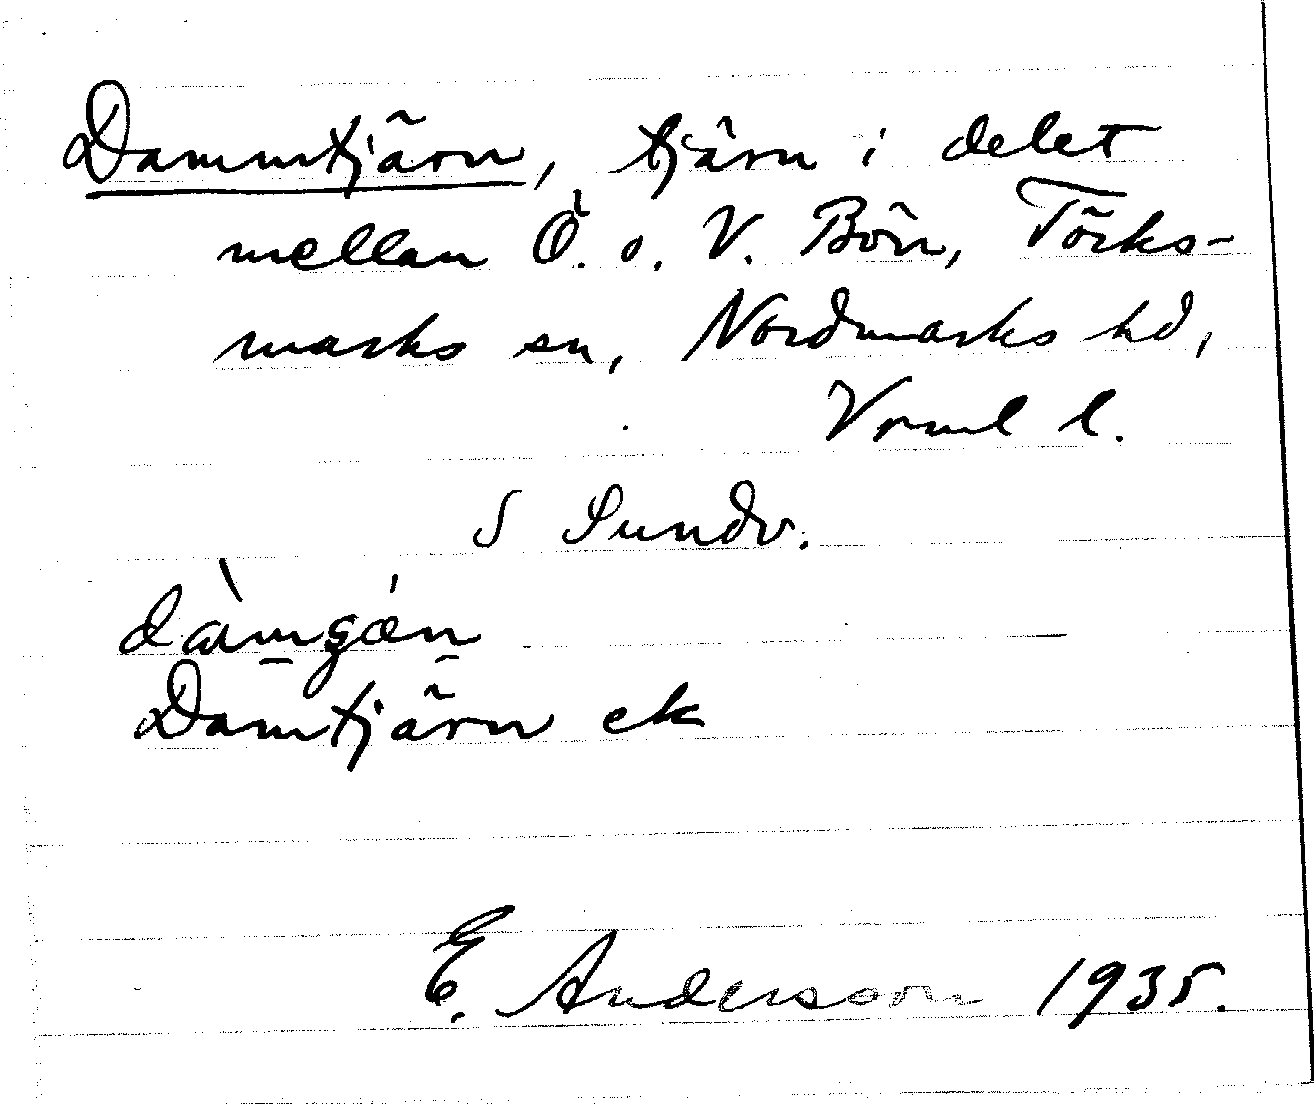 Dammtjärn, tjärn i delet
mellan Ö. o. V. Bön, Töcks-
marks sn, Nordmarks hd,
Vrml l.
S Sundv.
Damtjärn ek
E. Andersson 1935.